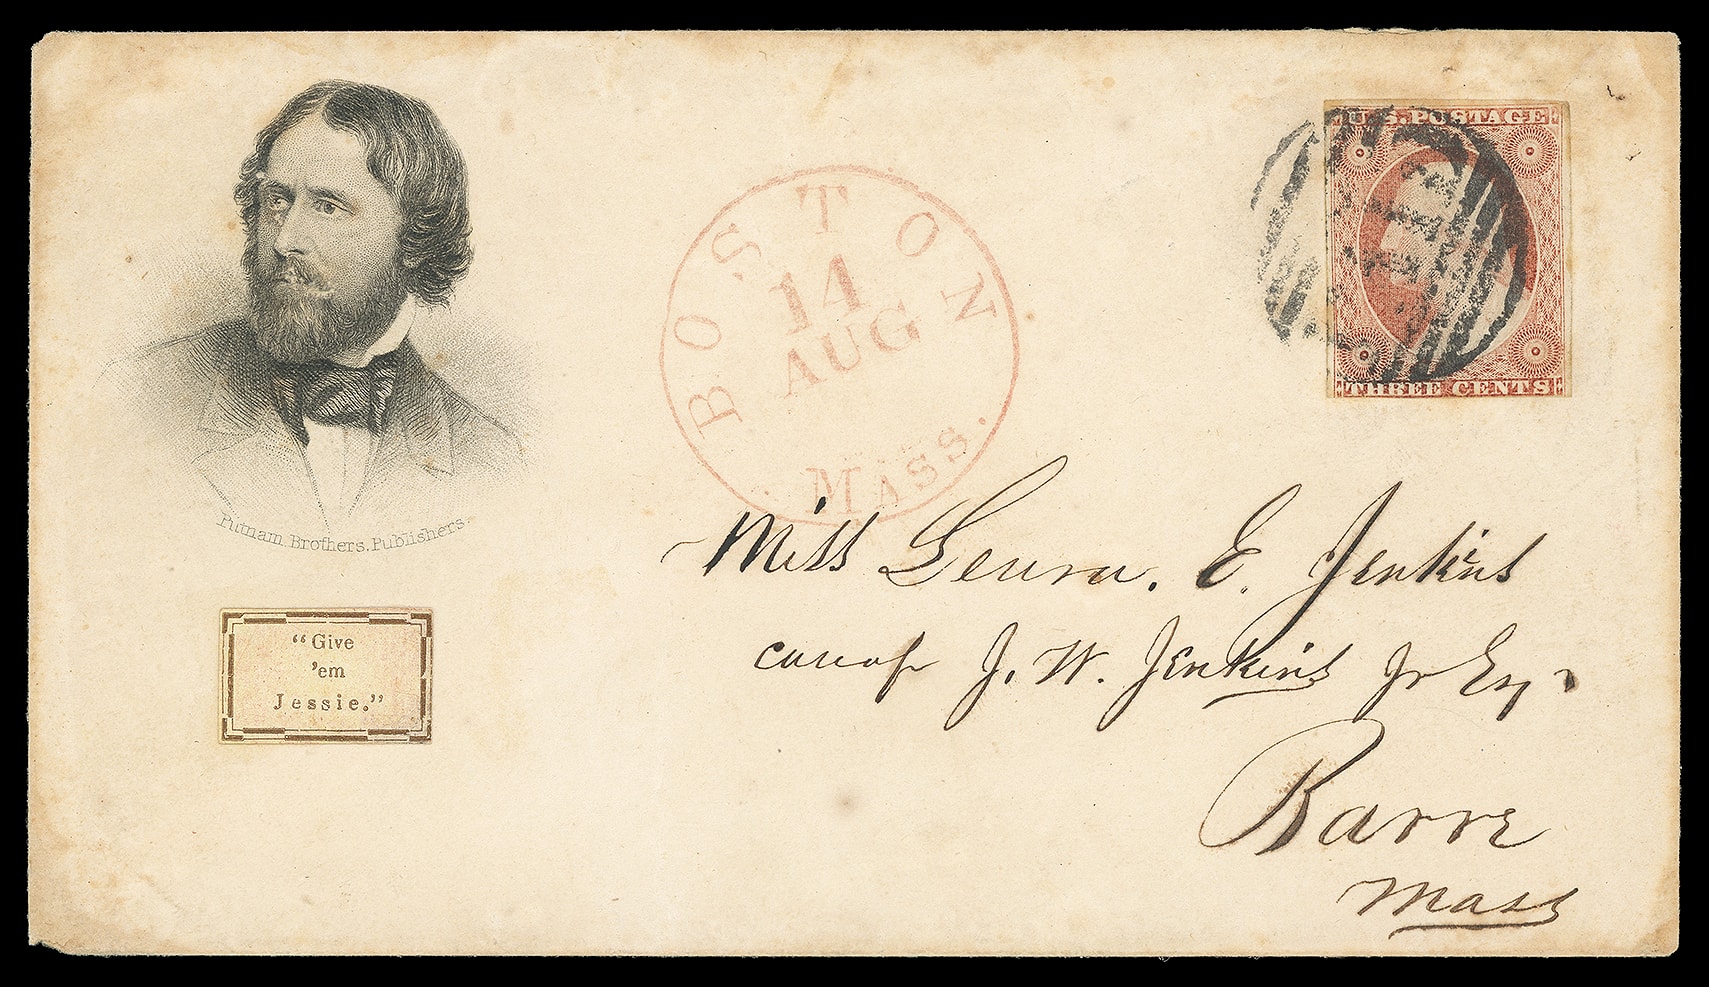 U.S. POSTAGE
THREE CENTS
BOSTON
14
AUG
MASS.
Putnam. Brothers. Publishers.
"Give
'em
Jessie."
Miss Laura. E. Jenkins
care of J. W. Jenkins Jr Esq.
Barre
Mass